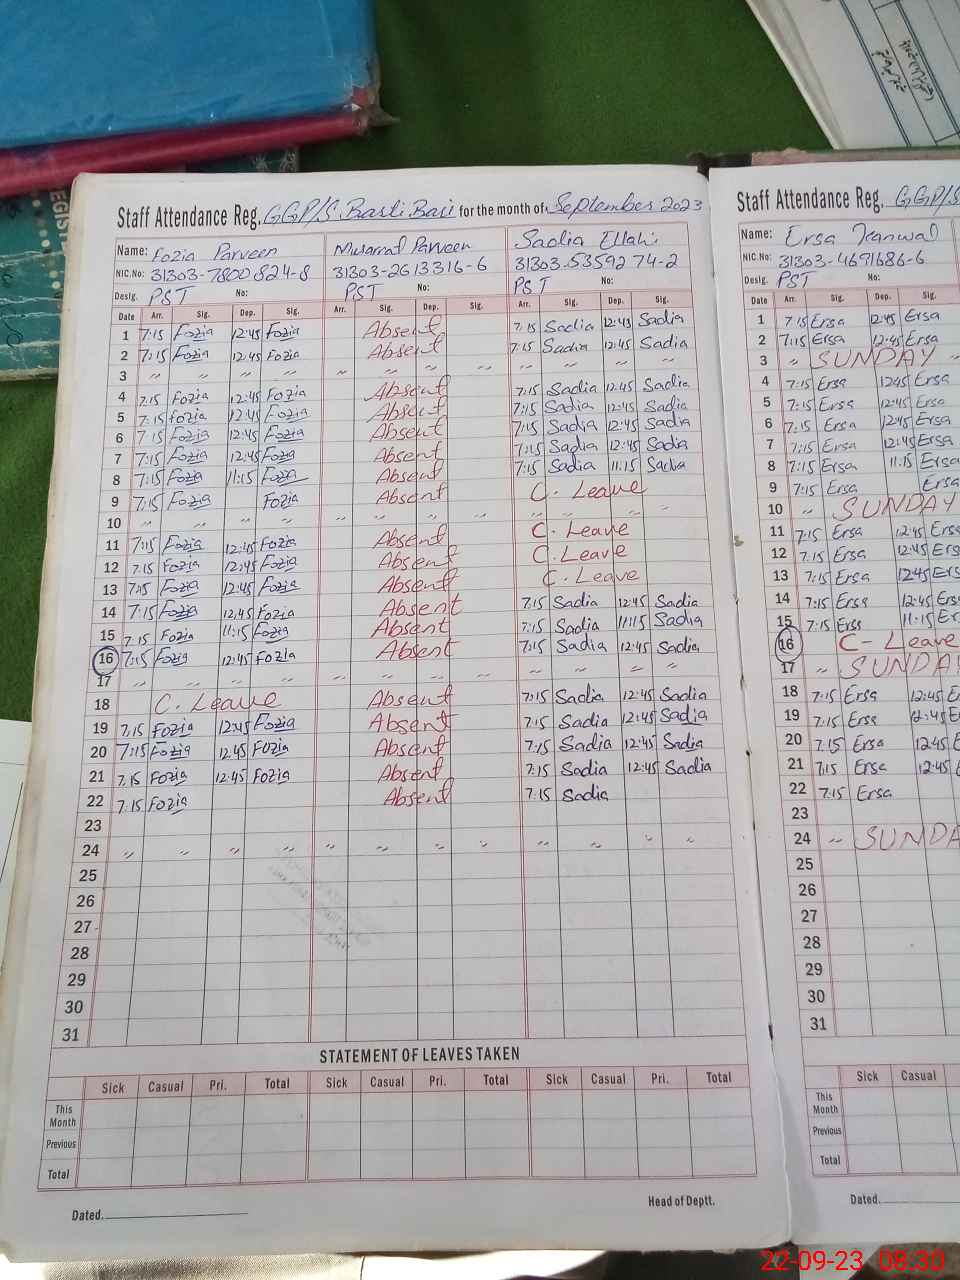 EGIST
Staff Attendance Reg. GGP/S. Basti Baji for the month of September 2023
Name: Fozia Parveen Musarrat Parveen Sadia Ellahi
NIC.No: 31303-7800824-8 31303-2613316-6 31303.5359274-2
Desig. PST No: PST PST No:
Date Arr. Sig. Dep. Sig. Arr. Sig. Dep. Sig. Arr. Sig. Dep. Sig.
1 7:15 Fozia 12:45 Fozia Absent 7:15 Sadia 12:45 Sadia
2 7:15 Fozia 12:45 Fozia Absent 7:15 Sadia 12:45 Sadia
3 " " " " " " " " " " " "
4 7:15 Fozia 12:45 Fozia Absent 7:15 Sadia 12:45 Sadia
5 7:15 Fozia 12:45 Fozia Absent 7:15 Sadia 12:45 Sadia
6 7:15 Fozia 12:45 Fozia Absent 7:15 Sadia 12:45 Sadia
7 7:15 Fozia 12:45 Fozia Absent 7:15 Sadia 12:45 Sadia
8 7:15 Fozia 11:15 Fozia Absent 7:15 Sadia 11:15 Sadia
9 7:15 Fozia Fozia Absent C. Leave
10 " " " " " " " " " " " "
11 7:15 Fozia 12:45 Fozia Absent C. Leave
12 7:15 Fozia 12:45 Fozia Absent C. Leave
13 7:15 Fozia 12:45 Fozia Absent C. Leave
14 7:15 Fozia 12:45 Fozia Absent 7:15 Sadia 12:45 Sadia
15 7:15 Fozia 11:15 Fozia Absent 7:15 Sadia 11:15 Sadia
16 7:15 Fozia 12:45 Fozia Absent 7:15 Sadia 12:45 Sadia
17 " " " " " " " " " " " "
18 C. Leave Absent 7:15 Sadia 12:45 Sadia
19 7:15 Fozia 12:45 Fozia Absent 7:15 Sadia 12:45 Sadia
20 7:15 Fozia 12:45 Fozia Absent 7:15 Sadia 12:45 Sadia
21 7:15 Fozia 12:45 Fozia Absent 7:15 Sadia 12:45 Sadia
22 7:15 Fozia Absent 7:15 Sadia
23
24 " " " " " " " " " " " "
25
26
27
28
29
30
31
STATEMENT OF LEAVES TAKEN
Sick Casual Pri. Total Sick Casual Pri. Total Sick Casual Pri. Total
This Month
Previous
Total
Dated. Head of Deptt.
Staff Attendance Reg. GGP/S
Name: Ersa Kanwal
NIC.No: 31303-4691686-6
Desig. PST No:
Date Arr. Sig. Dep. Sig.
1 7:15 Ersa 12:45 Ersa
2 7:15 Ersa 12:45 Ersa
3 " SUNDAY "
4 7:15 Ersa 12:45 Ersa
5 7:15 Ersa 12:45 Ersa
6 7:15 Ersa 12:45 Ersa
7 7:15 Ersa 12:45 Ersa
8 7:15 Ersa 11:15 Ersa
9 7:15 Ersa Ersa
10 " SUNDAY
11 7:15 Ersa 12:45 Ers
12 7:15 Ersa 12:45 Ers
13 7:15 Ersa 12:45 Ers
14 7:15 Ersa 12:45 Ers
15 7:15 Ersa 11:15 Er
16 C- Leave
17 " SUNDAY
18 7:15 Ersa 12:45 E
19 7:15 Ersa 12:45 E
20 7:15 Ersa 12:45 E
21 7:15 Ersa 12:45 E
22 7:15 Ersa
23
24 " SUNDA
25
26
27
28
29
30
31
Sick Casual
This Month
Previous
Total
Dated.
22-09-23 08:30